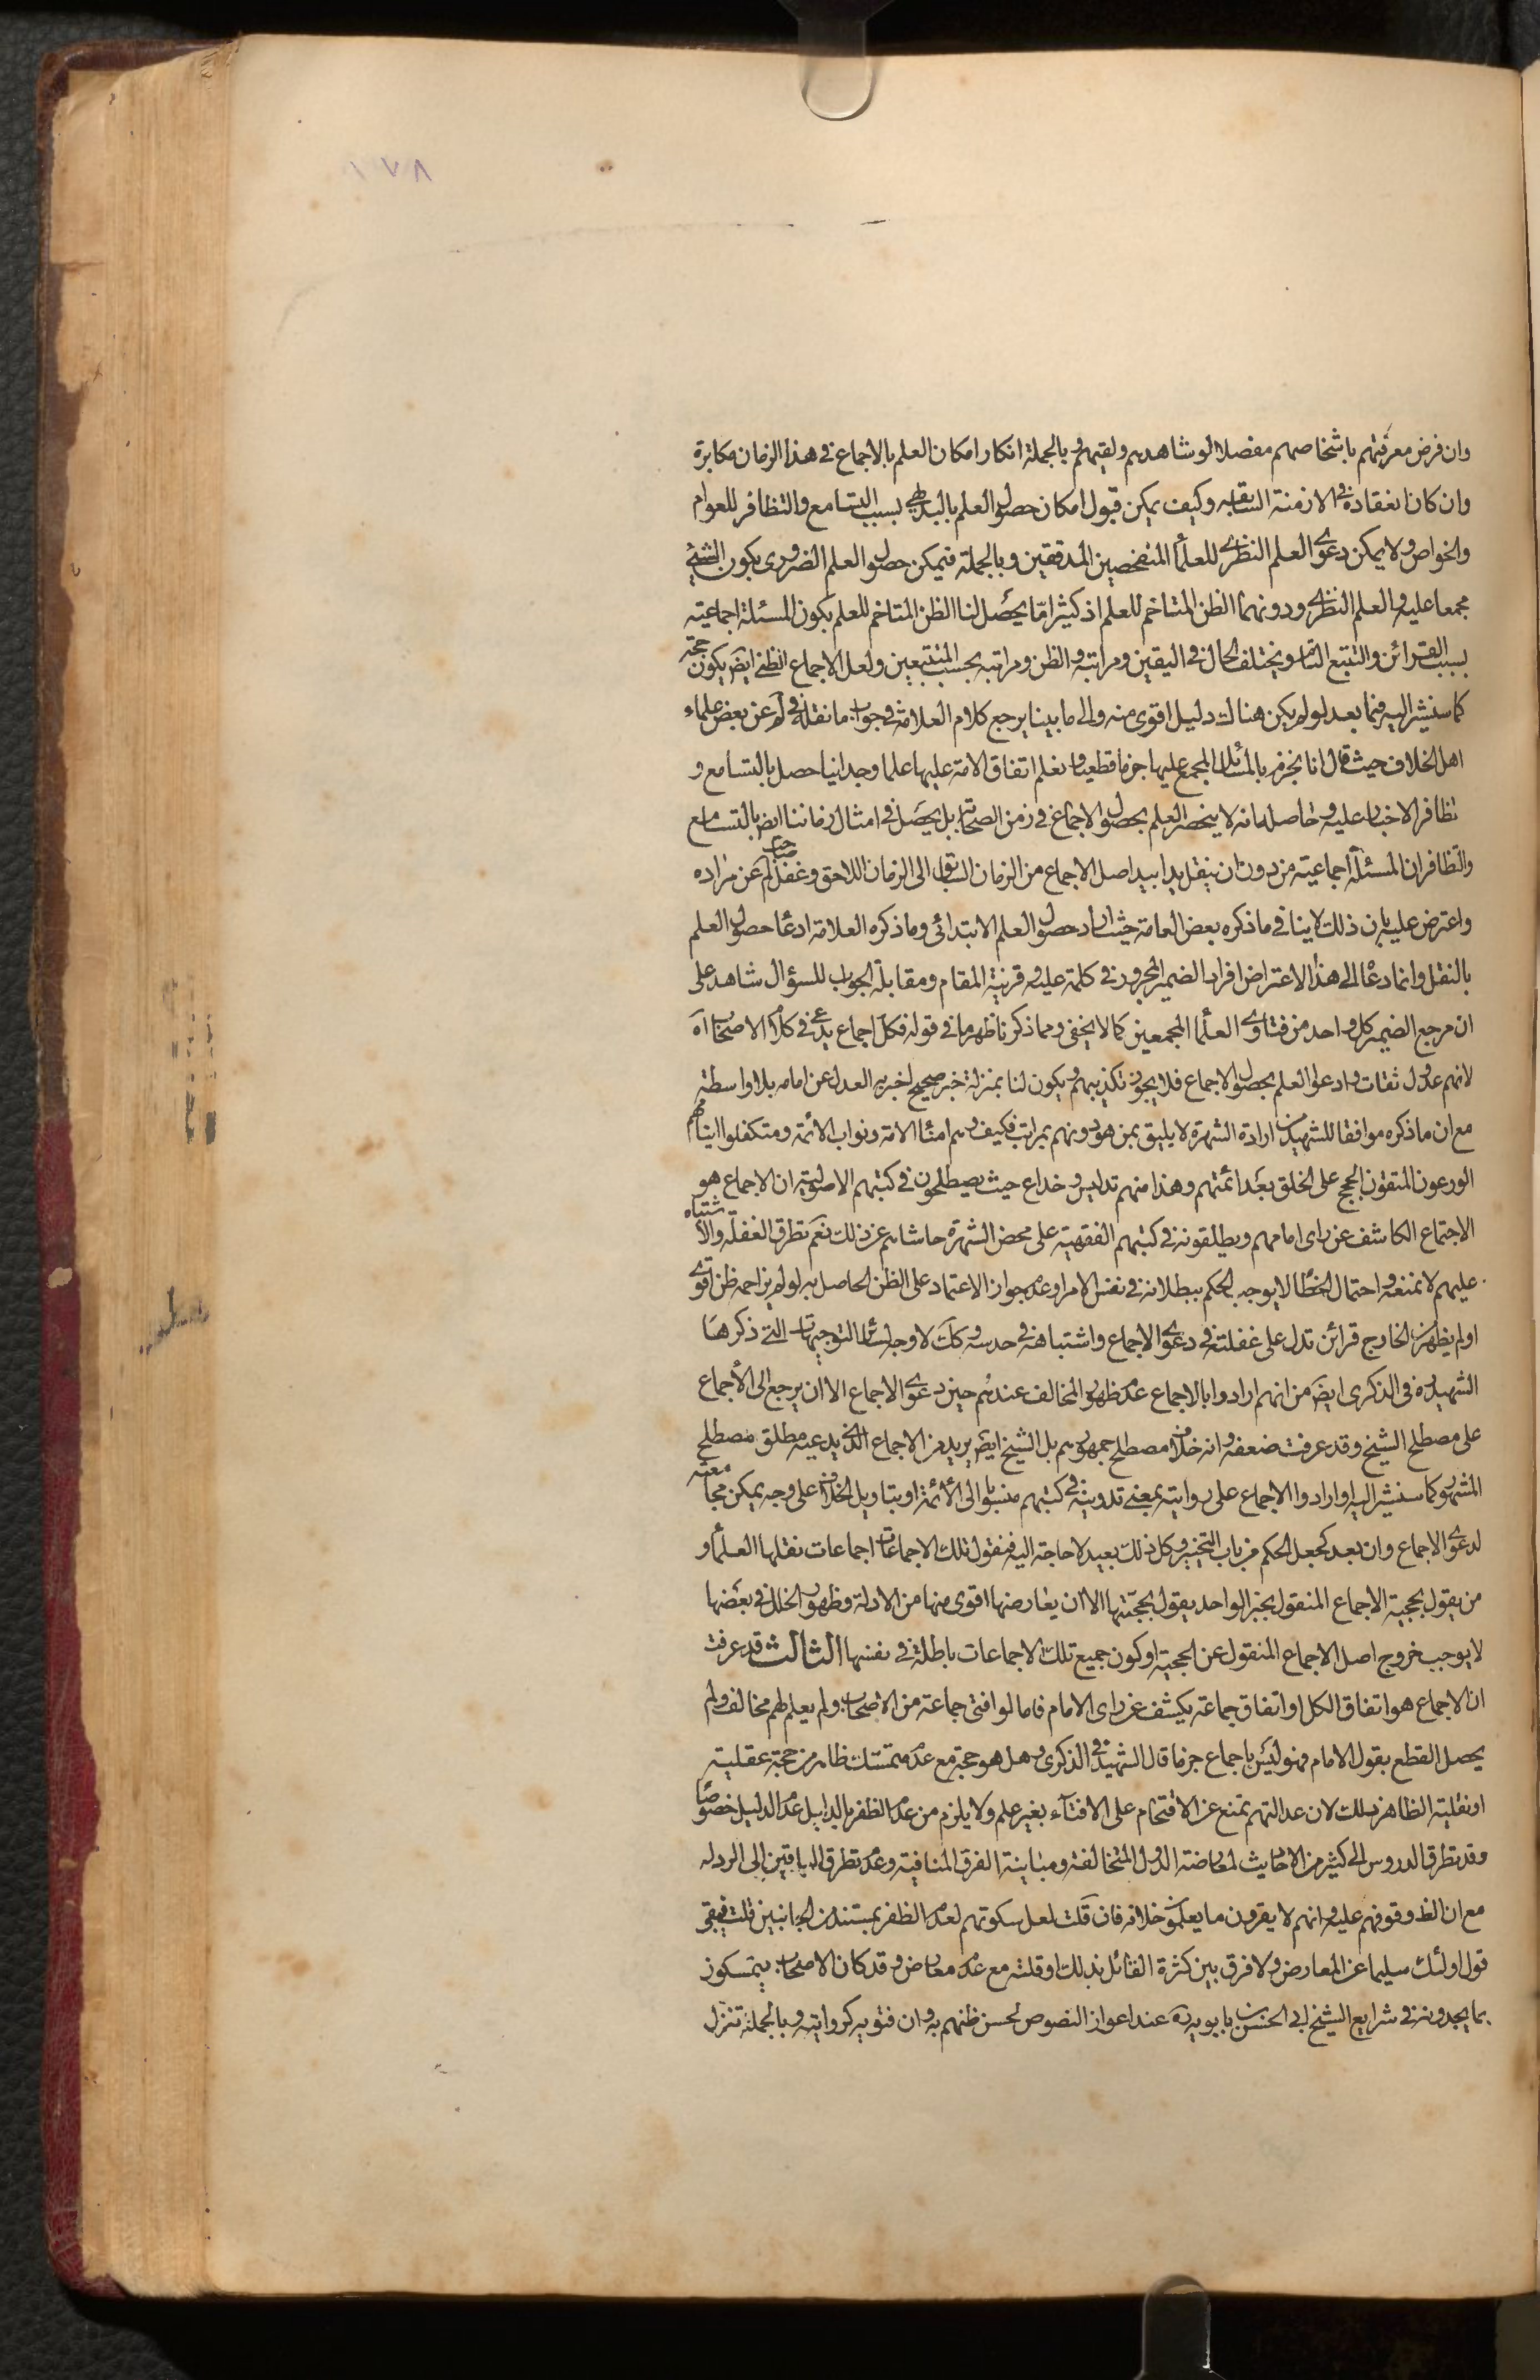 ١٧٨
وان فرض معرفتهم باشخاصهم مفصلا لو شاهدهم ولقيهم وبالجملة انكار امكان العلم بالاجماع في هذا الزمان مكابرة
وان كان انعقاده في الازمنة السابقه وكيف يمكن قبول امكان حصول العلم بالبديهي بسبب التسامع والتظافر للعوام
والخواص ولا يمكن دعوى العلم النظرى للعلماء المتفحصين المدققين وبالجملة فيمكن حصول العلم الضرورى بكون الشئ
مجمعا عليه والعلم النظرى ودونهما الظن المتاخم للعلم اذ كثيرا مّا يحصل لنا الظن المتاخم للعلم بكون المسئلة اجماعيته
بسبب القرائن والتتبع التام ويختلف الحال في اليقين ومراتبه والظن ومراتبه بحسب المتتبعين ولعل الاجماع الظنى ايض يكون حجة
كما سنشير اليه فيما بعد لو لم يكن هنالك دليل اقوى منه والى ما بينا يرجع كلام العلامة في جواب ما نقله في لم عن بعض علماء
اهل الخلاف حيث قال انا نجزم بالمسائل المجمع عليها جزما قطعيا ونعلم اتفاق الامة عليها علما وجدانيا حصل بالتسامع و
تظافر الاخبار عليه وحاصله انه لا ينحصر العلم بحصول الاجماع في زمن الصحابة بل يحصل في امثال زماننا ايض بالتسامع
والتظافر ان المسئلة اجماعيته من دون ان ينقل يدا بيد اصل الاجماع من الزمان السابق الى الزمان اللاحق وغفل صاحب لم عن مراده
واعترض عليه بان ذلك لا ينافي ما ذكره بعض العامة حيث اراد حصول العلم الابتدائى وما ذكره العلامة ادعا حصول العلم
بالنقل وانما دعاه الى هذا الاعتراض افراد الضمير المجرور في كلمة عليه وقرينة المقام ومقابلة الجواب للسؤال شاهد على
ان مرجع الضمير كل واحد من فتاوى العلماء المجمعين كما لا يخفى ومما ذكرنا ظهر ما في قوله فكل اجماع يدعى في كلام الاصحاب اه
لانهم عدول ثقات وادعوا العلم بحصول الاجماع فلا يجوز تكذيبهم ويكون لنا بمنزلة خبر صحيح اخبر به العدل عن امامه بلا واسطة
مع ان ما ذكره موافقا للشهيد من ارادة الشهرة لا يليق بمن هو دونهم بمراتب فكيف وهم امناء الامة ونواب الائمة ومتكفلوا ايتامهم
الورعون المتقون الحجج على الخلق بعد ائمتهم وهذا منهم تدليس وخداع حيث يصطلحون في كتبهم الاصولية ان الاجماع هو
الاجتماع الكاشف عن راى امامهم ويطلقونه في كتبهم الفقهية على محض الشهرة حاشاهم عن ذلك نعم تطرق الغفلة والاشتباه
عليهم لا نمنعه واحتمال الخطا لا يوجب الحكم ببطلانه في نفس الامر وعدم جواز الاعتماد على الظن الحاصل به لو لم يزاحمه ظن اقوى
او لم يظهر من الخارج قرائن تدل على غفلته في دعوى الاجماع واشتباهه في حدسه وكك لا وجه لسائر التوجيهات التي ذكرها
الشهيد ره في الذكرى ايض من انهم ارادوا بالاجماع عدم ظهور المخالف عندهم حين دعوى الاجماع الا ان يرجع الى الاجماع
على مصطلح الشيخ وقد عرفت ضعفه وانه خلاف مصطلح جمهورهم بل الشيخ ايض يريد من الاجماع الذى يدعيه مطلق مصطلح
المشهور كما سنشير اليه او ارادوا الاجماع على روايته بمعنى تدوينه في كتبهم منسوبا الى الائمة او بتاويل الخلاف على وجه يمكن مجامعته
لدعوى الاجماع وان بعد كجعل الحكم من باب التخيير وكل ذلك بعيد لا حاجة اليه فنقول تلك الاجماعات اجماعات نقلها العلماء و
من يقول بحجية الاجماع المنقول بخبر الواحد يقول بحجيتها الا ان يعارضها اقوى منها من الادلة وظهور الخلل في بعضها
لا يوجب خروج اصل الاجماع المنقول عن الحجية او كون جميع تلك الاجماعات باطلة في نفسها الثالث قد عرفت
ان الاجماع هو اتفاق الكل او اتفاق جماعة يكشف عن راى الامام فاما لو افتى جماعة من الاصحاب ولم يعلم لهم مخالف ولم
يحصل القطع بقول الامام فهو ليس باجماع جزما قال الشهيد في الذكرى وهل هو حجة مع عدم متمسك ظاهر من حجة عقلية
او نقلية الظاهر ذلك لان عدالتهم تمنع عن الاقتحام على الافتاء بغير علم ولا يلزم من عدم الظفر بالدليل عدم الدليل خصوصًا
وقد تطرق الدروس الى كثير من الاحاديث لمعارضة الدول المخالفة ومباينة الفرق المنافية وعدم تطرق الباقين الى الرد له
مع ان الظ وقوفهم عليه وانهم لا يقرون ما يعلمون خلافه فان قلت لعل سكوتهم لعدم الظفر بمستند من الجانبين قلت فيبقى
قول اولئك سليما عن المعارض ولا فرق بين كثرة القائل بذلك او قلته مع عدم معارض وقد كان الاصحاب يتمسكون
بما يجدونه في شرايع الشيخ ابى الحسن بن بابويه ره عند اعواز النصوص لحسن ظنهم به وان فتويه كروايته وبالجملة تنزل